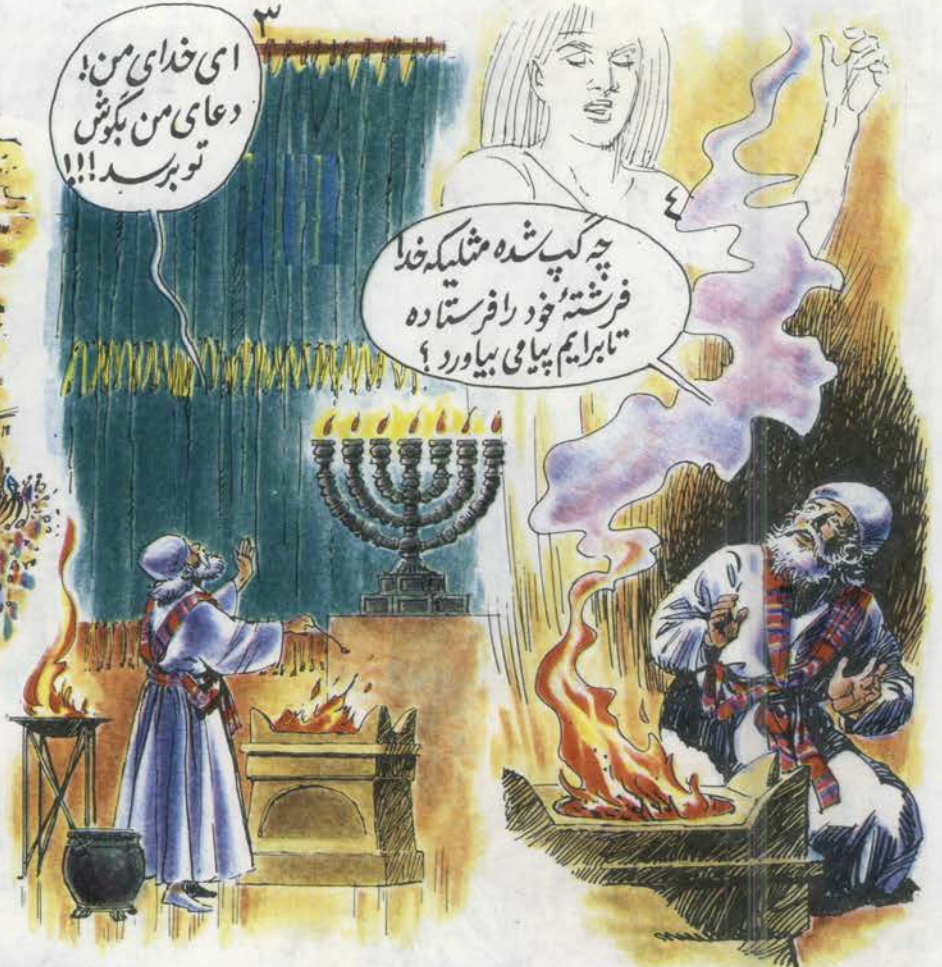 ۳
ای خدای من!
دعای من بگوش
تو برسد!!!
٤
چه گپ شده مثلیکه خدا
فرشتهٔ خود را فرستاده
تا برایم پیامی بیاورد؟